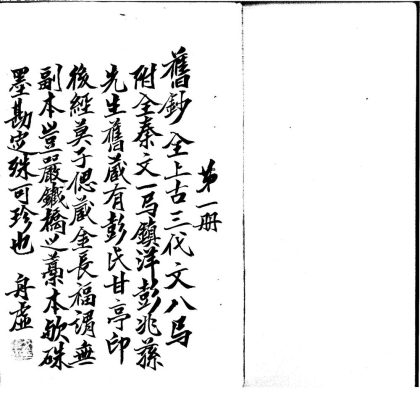 第一冊
舊鈔全上古三代文八卷
附全秦文一卷鎮洋彭兆蓀
先生舊藏有彭氏甘亭印
後經莫子偲藏金長福謂無
副本豈嚴鐵橋之藁本歟硃
墨勘定殊可珍也 舟虛